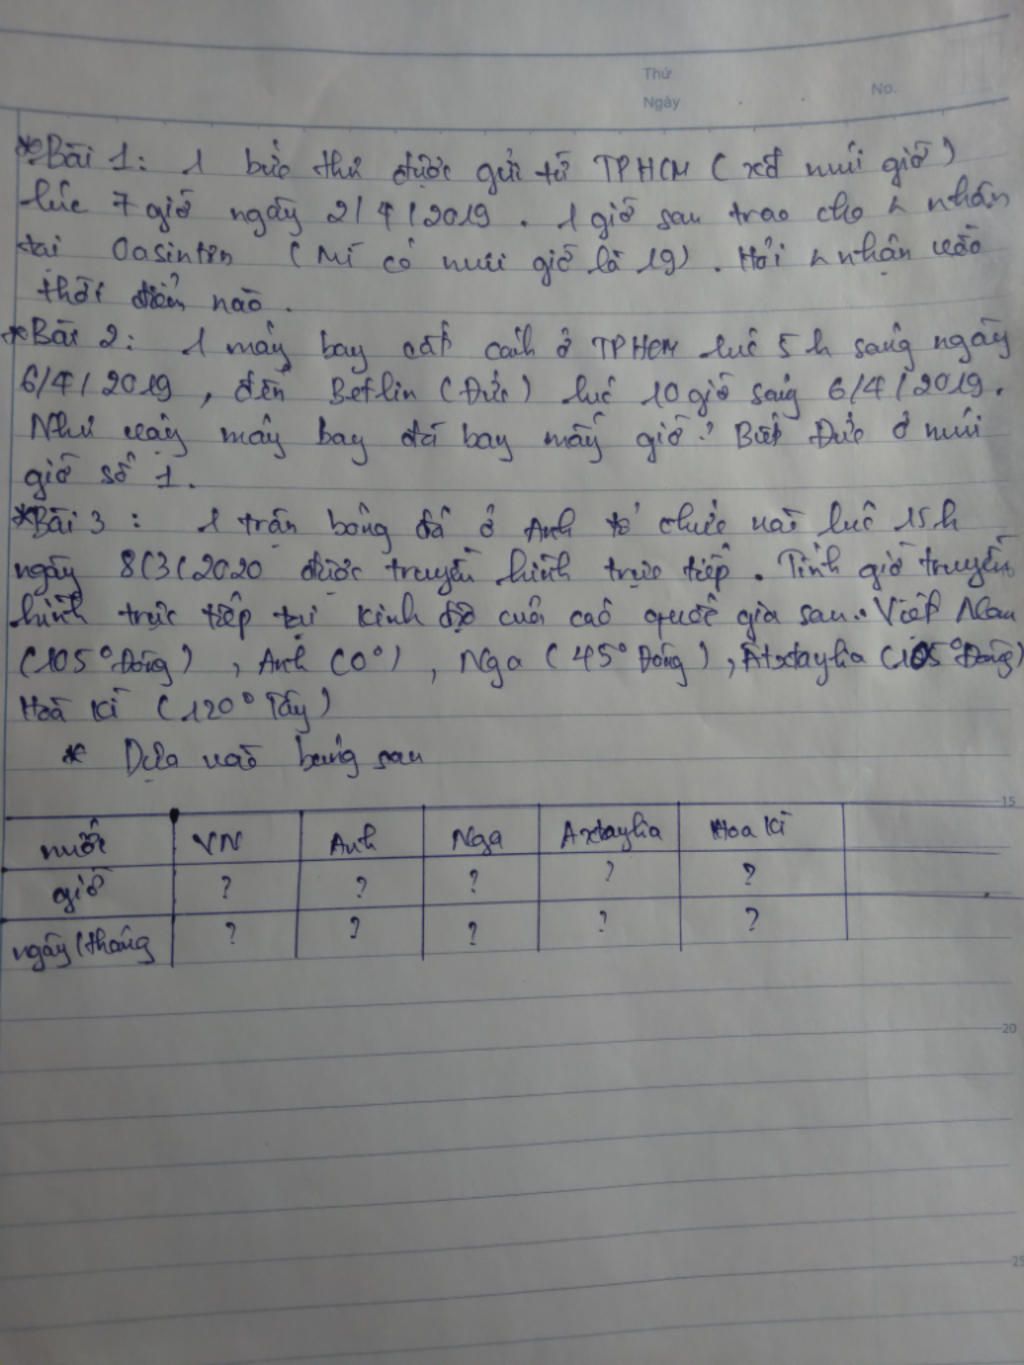 Thứ
Ngày No.
* Bài 1: 1 bức thư được gửi từ TPHCM (xđ múi giờ)
lúc 7 giờ ngày 2/4/2019. 1 giờ sau trao cho ng nhận
tại Oasintơn (Mĩ có múi giờ là 19). Hỏi ng nhận vào
thời điểm nào.
* Bài 2: 1 máy bay cất cánh ở TPHCM lúc 5h sáng ngày
6/4/2019, đến Beflin (Đức) lúc 10 giờ sáng 6/4/2019.
Như vậy máy bay đã bay mấy giờ? Biết Đức ở múi
giờ số 1.
* Bài 3: 1 trận bóng đá ở Anh tổ chức vào lúc 15h
ngày 8/3/2020 được truyền hình trực tiếp. Tính giờ truyền
hình trực tiếp tại kinh độ của các quốc gia sau: Việt Nam
(105° Đông), Anh (0°), Nga (45° Đông), Ôxtaylia (105° Đông)
Hoa Kì (120° Tây)
* Dựa vào bảng sau
15
nước VN Anh Nga Axtaylia Hoa Kì
giờ ? ? ? ? ?
ngày/tháng ? ? ? ? ?
20
25